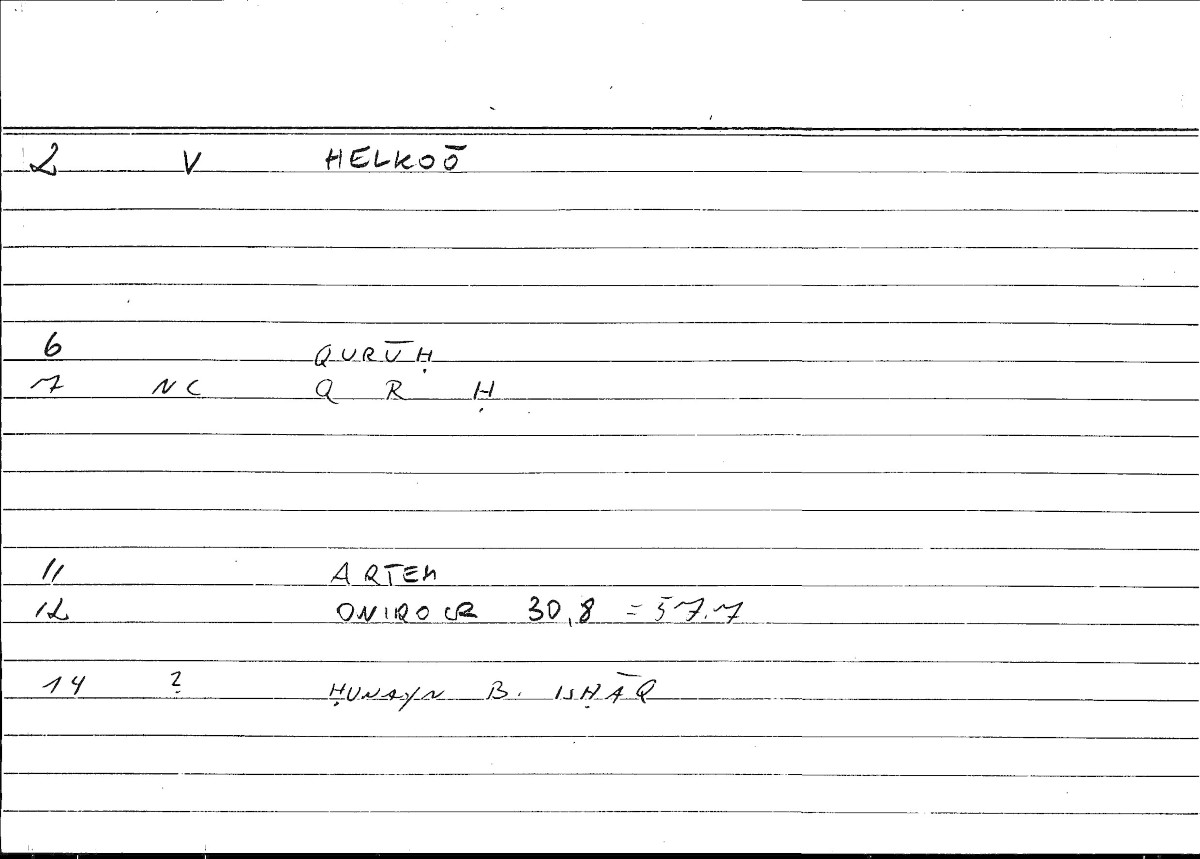 2 V HELKOŌ
6 QURŪḤ
7 NC Q R Ḥ
11 ARTEM
12 ONIROCR 30,8 = 57.7
14 ? ḤUNAYN B. ISḤĀQ